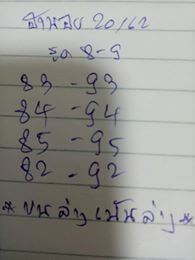 ฮานอย 20/62
รูด 8-9
83 - 93
84 - 94
85 - 95
82 - 92
* บนล่าง เน้นล่าง *